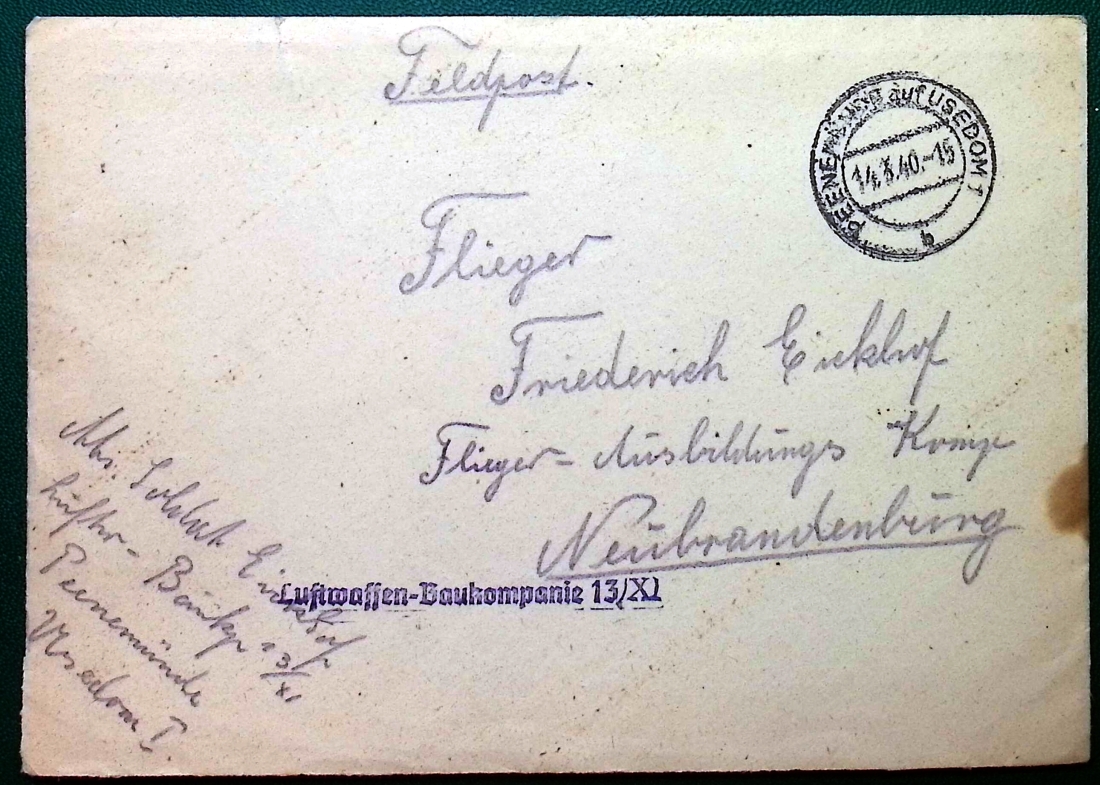 Feldpost.
PEENEMÜNDE auf USEDOM 1
14.3.40.-15
b
Flieger
Friederich Eickhof
Flieger-Ausbildungs Komp
Neubrandenburg
Luftwaffen-Baukompanie 13/XI
Abs. Soldat Eickhof
Luftw.- Baukp 13/XI
Peenemünde
Usedom I